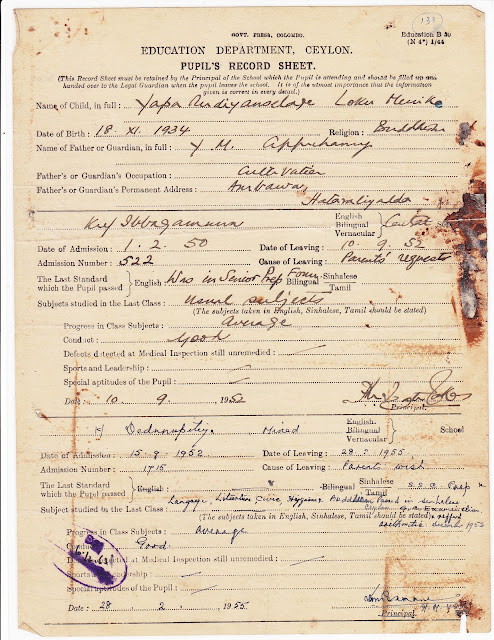 138
GOVT. PRESS, COLOMBO.
Education B 50
(N 4*) 1/44
EDUCATION DEPARTMENT, CEYLON.
PUPIL'S RECORD SHEET.
(This Record Sheet must be retained by the Principal of the School which the Pupil is attending and should be filled up and
handed over to the Legal Guardian when the pupil leaves the school. It is of the utmost importance that the information
given is correct in every detail.)
Name of Child, in full : Yapa Loku Menike
Date of Birth : 18. XI. 1934 Religion : Buddhism
Name of Father or Guardian, in full : Y. M. Appuhamy
Father's or Guardian's Occupation : Cultivation
Father's or Guardian's Permanent Address : Ambawa,
Hataraliyadda
Ibbagamuwa English
Bilingual Central
Vernacular
Date of Admission : 1. 2. 50 Date of Leaving : 10. 9. 52
Admission Number : 522 Cause of Leaving : Parents' request
The Last Standard which the Pupil passed English : Was in Senior Prep Form Bilingual Sinhalese Tamil
Subjects studied in the Last Class : Usual subjects
(The subjects taken in English, Sinhalese, Tamil should be stated)
Progress in Class Subjects : Average
Conduct : Good
Defects detected at Medical Inspection still unremedied :
Sports and Leadership :
Special aptitudes of the Pupil :
Date : 10 9 1952
Principal.
Mixed English.
Bilingual School
Vernacular
Date of Admission : 15-9-1952 Date of Leaving : 28-2-1955
Admission Number : 1715 Cause of Leaving : Parents wish
The Last Standard which Pupil passed English : - Bilingual Sinhalese Tamil S.S.C. Prep
Subject studied in the Last Class : Language Literature Civic Hygiene Buddhism in sinhalese
(The subjects taken in English, Sinhalese, Tamil should be stated)
arithmetic 1953
Progress in Class Subjects : Average
Conduct : Good
Defects detected at Medical Inspection still unremedied :
Sports and Leadership :
Special aptitudes of the Pupil :
Date : 28 2. 1955.
Principal